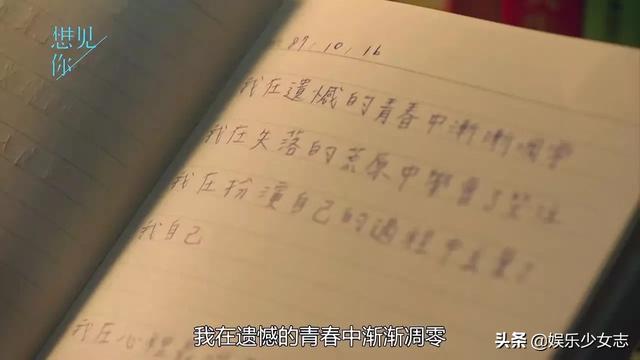 想见
你
87.10.16
我在遺憾的青春中漸漸凋零
我在失落的荒原中學會了堅強
我在扮演自己的過程中丟棄了
我自己
我在心裡
我在遗憾的青春中渐渐凋零
头条 @娱乐少女志